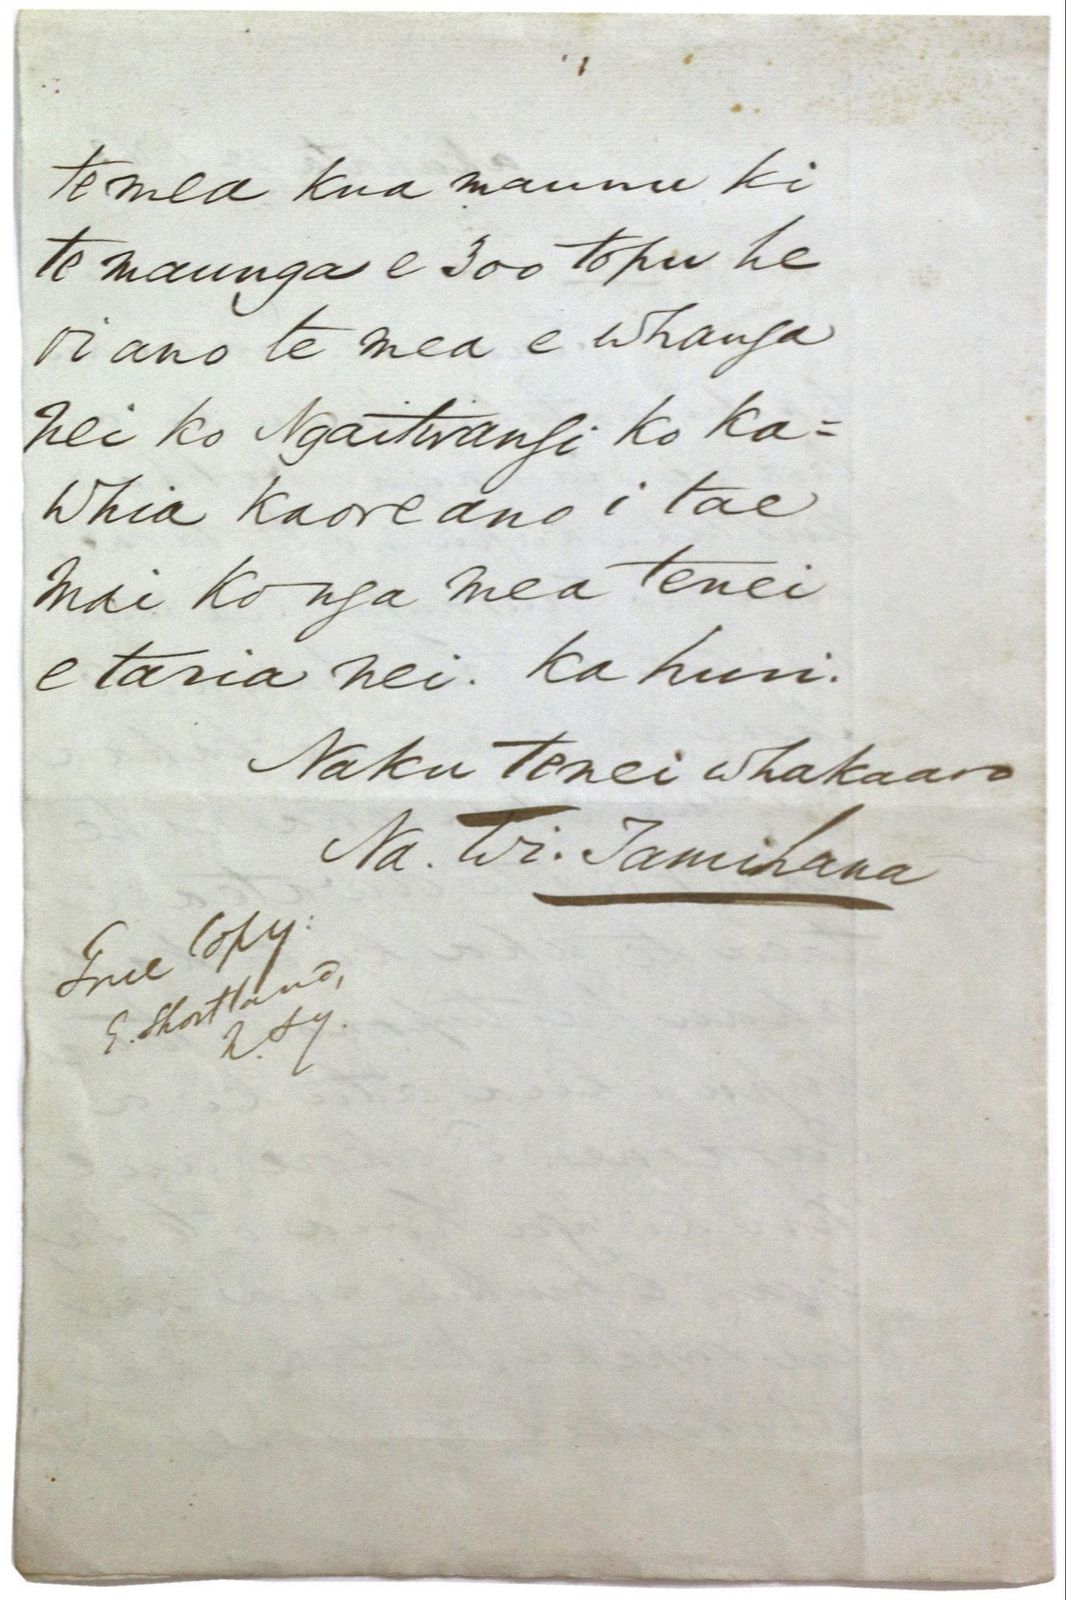 te mea kua maunu ki
te maunga e 300 topu he
oi ano te mea e whanga
nei ko Ngaitirangi ko ka=
whia kaore ano i tae
mai ko nga mea tenei
e taria nei. Ka huri.
Naku tenei whakaaro
Na. Wi. Tamihana
True Copy:
E. Shortland,
N. Sy.